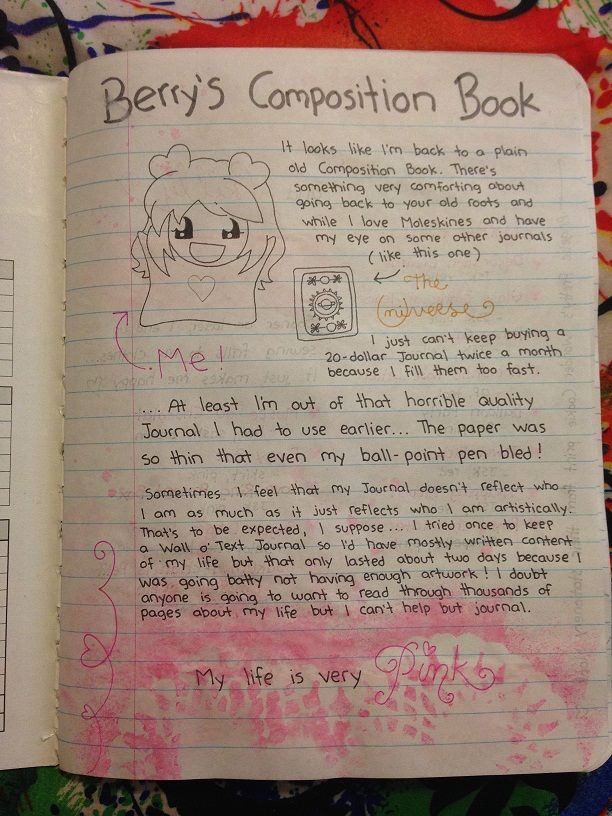 Berry's Composition Book
It looks like I'm back to a plain
old Composition Book. There's
something very comforting about
going back to your old roots and
while I love Moleskines and have
my eye on some other journals
(like this one)
The
Universe
Me!
I just can't keep buying a
20-dollar Journal twice a month
because I fill them too fast.
... At least I'm out of that horrible quality
Journal I had to use earlier... The paper was
so thin that even my ball-point pen bled!
Sometimes I feel that my Journal doesn't reflect who
I am as much as it just reflects who I am artistically.
That's to be expected, I suppose... I tried once to keep
a Wall o' Text Journal so I'd have mostly written content
of my life but that only lasted about two days because I
was going batty not having enough artwork! I doubt
anyone is going to want to read through thousands of
pages about my life but I can't help but journal.
My life is very Pink